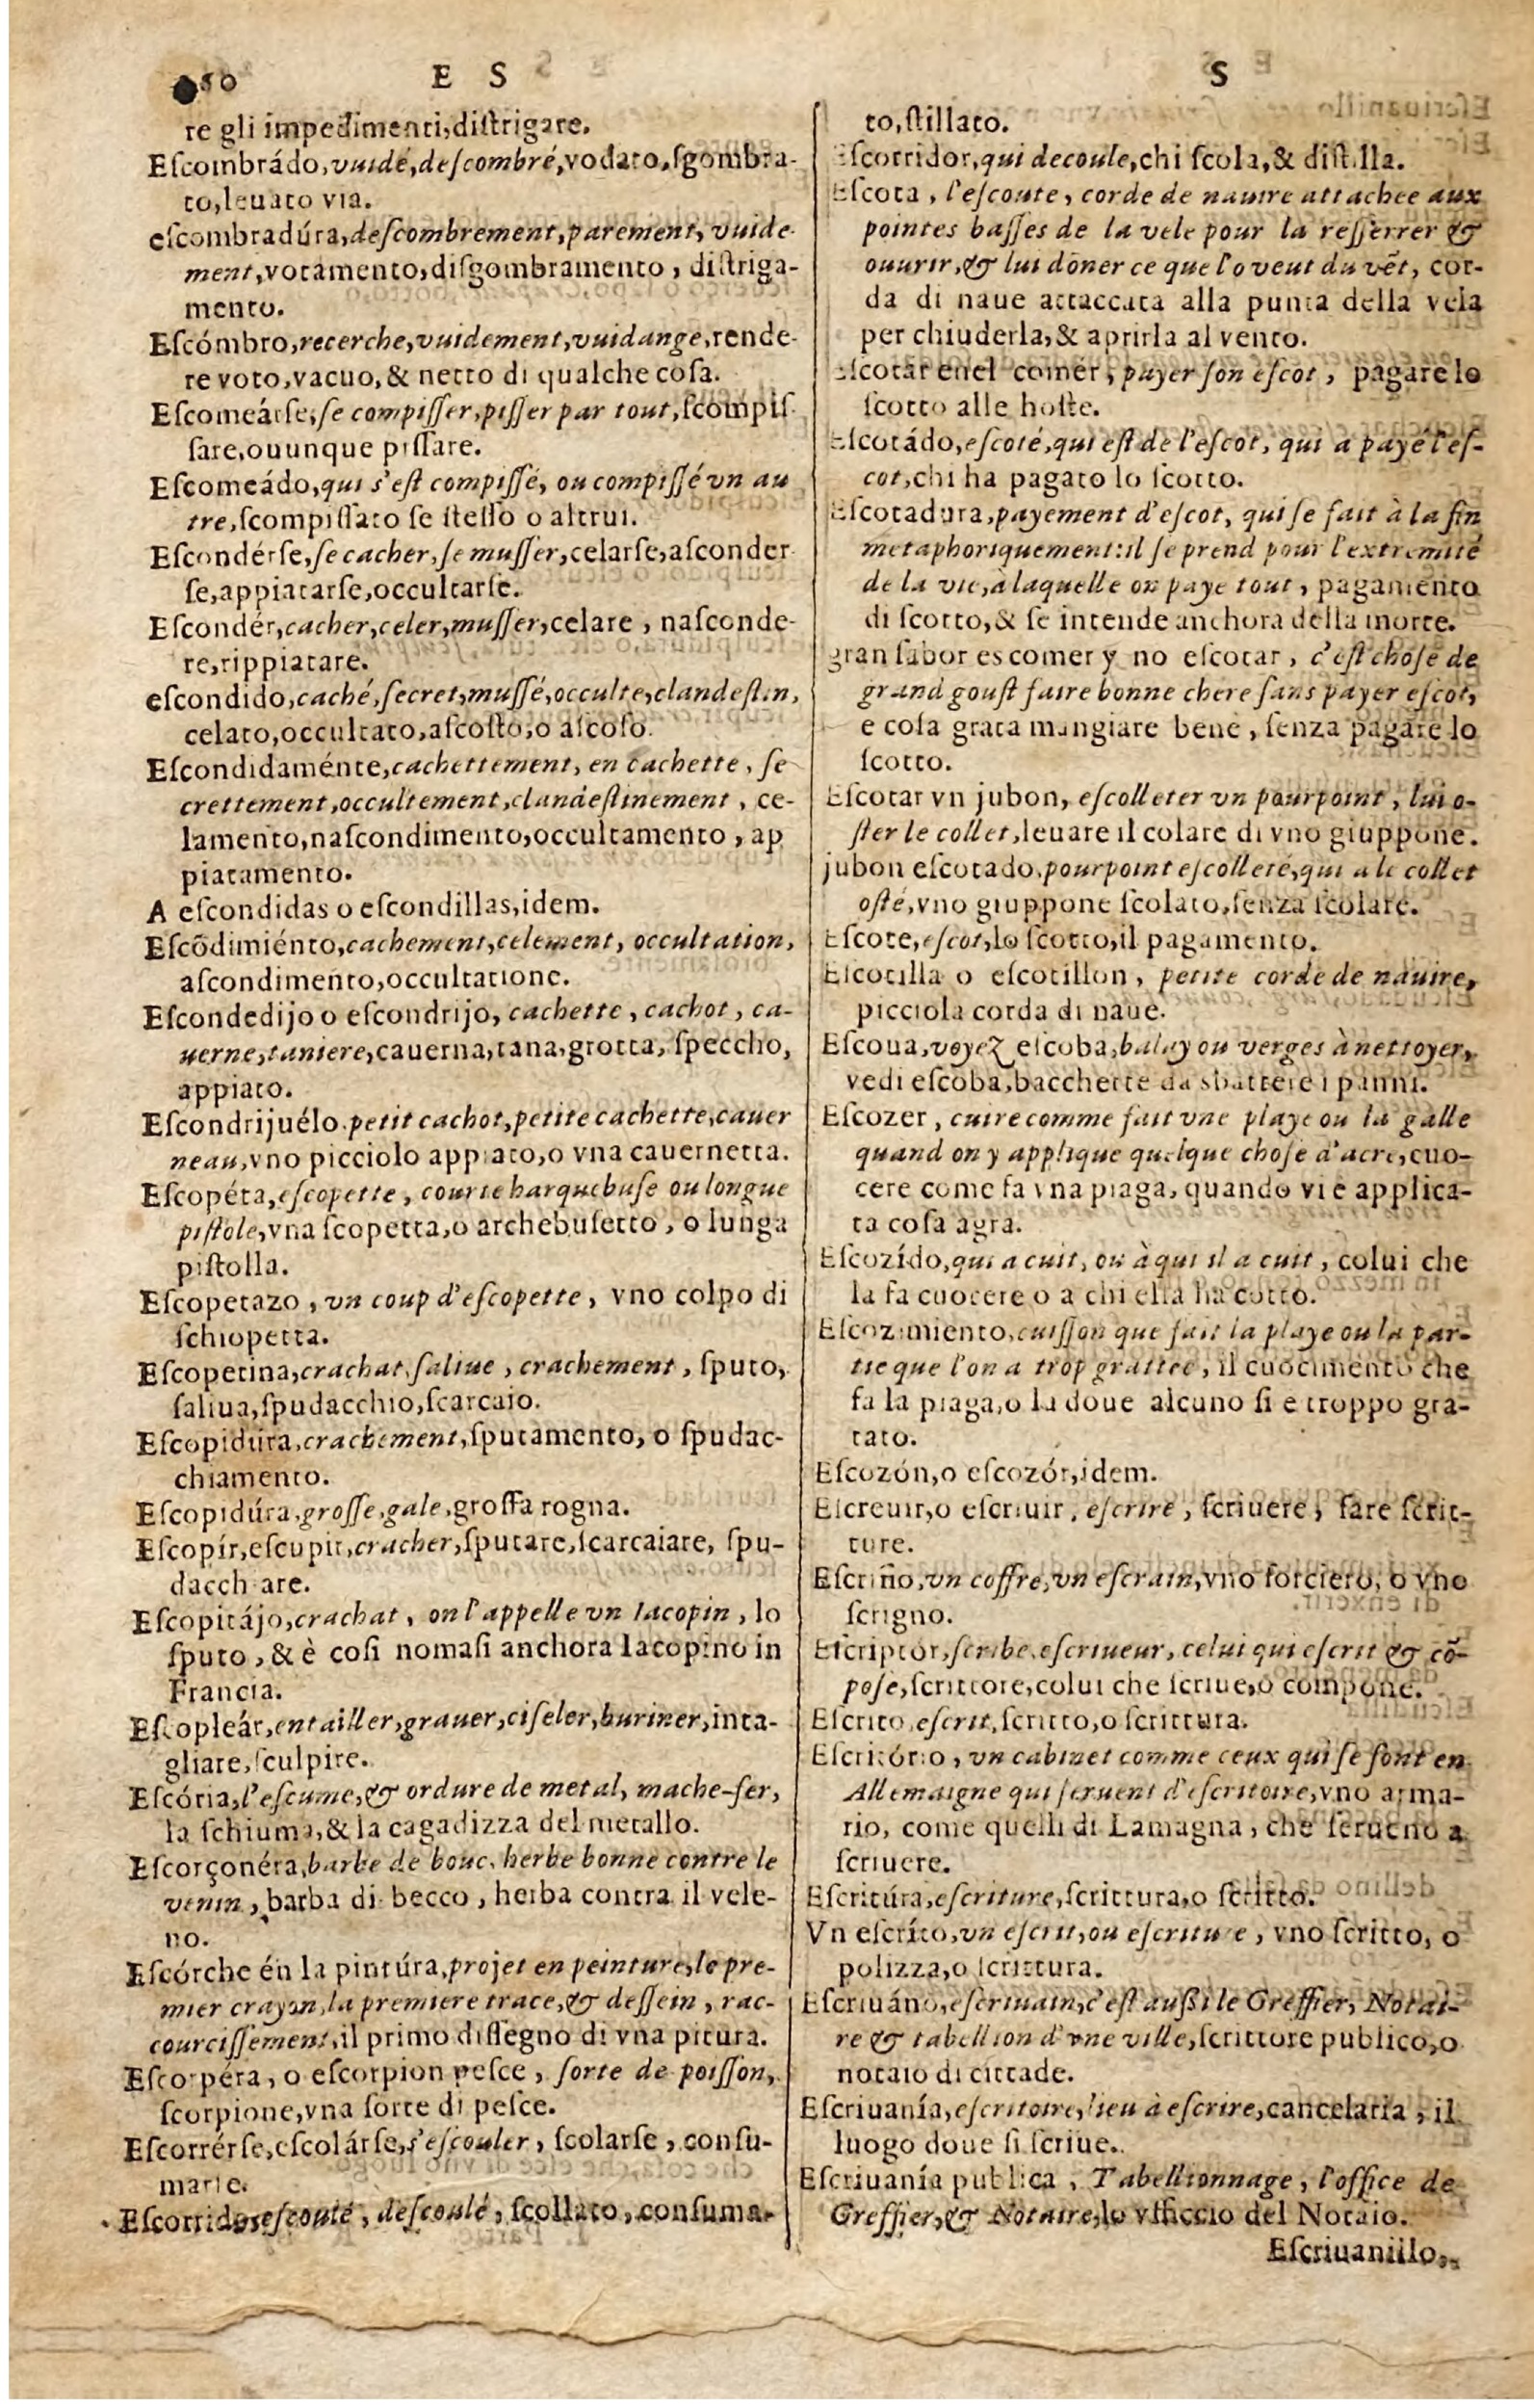 50 E S
re gli impedimenti,diſtrigare.
Eſcombrádo,vuidé,deſcombré,vodato,ſgombra-
to,leuato via.
eſcombradúra,deſcombrement,parement,vuide-
ment,votamento,diſgombramento, diſtriga-
mento.
Eſcómbro,recerche,vuidement,vuidange,rende-
re voto,vacuo,& netto di qualche coſa.
Eſcomeárſe,ſe compiſſer,piſſer par tout,ſcompiſ-
ſare,ouunque piſſare.
Eſcomeádo,qui s'eſt compiſſé, ou compiſſé vn au
tre,ſcompiſſato ſe ſteſſo o altrui.
Eſcondérſe,ſe cacher,ſe muſſer,celarſe,aſconder
ſe,appiatarſe,occultarſe.
Eſcondér,cacher,celer,muſſer,celare, naſconde-
re,rippiatare.
eſcondido,caché,ſecret,muſſé,occulte,clandeſtin,
celato,occultato,aſcoſto,o aſcoſo.
Eſcondidaménte,cachettement, en cachette, ſe
crettement,occultement,clandeſtinement, ce-
lamento,naſcondimento,occultamento, ap
piatamento.
A eſcondidas o eſcondillas,idem.
Eſcõdimiénto,cachement,celement, occultation,
aſcondimento,occultatione.
Eſcondedijo o eſcondrijo, cachette, cachot, ca-
uerne,taniere,cauerna,tana,grotta, ſpeccho,
appiato.
Eſcondrijuélo.petit cachot,petite cachette,cauer
neau,vno picciolo appiato,o vna cauernetta.
Eſcopéta,eſcopette, courte harquebuſe ou longue
piſtole,vna ſcopetta,o archebuſetto, o lunga
piſtolla.
Eſcopetazo, vn coup d'eſcopette, vno colpo di
ſchiopetta.
Eſcopetina,crachat,ſaliue, crachement, ſputo,
ſaliua,ſpudacchio,ſcarcaio.
Eſcopidúra,crachement,ſputamento, o ſpudac-
chiamento.
Eſcopidúra,groſſe,gale,groſſa rogna.
Eſcopír,eſcupir,cracher,ſputare,ſcarcaiare, ſpu-
dacchiare.
Eſcopitájo,crachat, on l'appelle vn Iacopin, lo
ſputo, & è coſi nomaſi anchora Iacopino in
Francia.
Eſcopleár,entailler,grauer,ciſeler,buriner,inta-
gliare,ſculpire.
Eſcória,l'eſcume,& ordure de metal, mache-fer,
la ſchiuma,& la cagadizza del metallo.
Eſcorçonéra,barbe de bouc, herbe bonne contre le
venin, barba di becco, herba contra il vele-
no.
Eſcórche én la pintúra,projet en peinture,le pre-
mier crayon,la premiere trace,& deſſein, rac-
courciſſement,il primo diſſegno di vna pitura.
Eſcorpéra, o eſcorpion peſce, ſorte de poiſſon,
ſcorpione,vna ſorte di peſce.
Eſcorrérſe,eſcolárſe,s'eſcouler, ſcolarſe, conſu-
marſe.
Eſcorrido,eſcoulé, deſcoulé, ſcollato, conſuma-
S
to,ſtillato.
Eſcorridor,qui decoule,chi ſcola,& diſtilla.
Eſcota, l'eſcoute, corde de nauire attachee aux
pointes baſſes de la vele pour la reſſerrer &
ouurir,& lui dõner ce que l'õ veut du vẽt, cor-
da di naue attaccata alla punta della vela
per chiuderla,& aprirla al vento.
Eſcotar enel comér, payer ſon eſcot, pagare lo
ſcotto alle hoſte.
Eſcotádo,eſcoté,qui eſt de l'eſcot, qui a payé l'eſ-
cot,chi ha pagato lo ſcotto.
Eſcotadura,payement d'eſcot, qui ſe fait à la fin
metaphoriquement:il ſe prend pour l'extremité
de la vie,a laquelle on paye tout, pagamento
di ſcotto,& ſe intende anchora della morte.
gran ſabor es comer y no eſcotar, c'eſt choſe de
grand gouſt faire bonne chere ſans payer eſcot,
e coſa grata mangiare bene, ſenza pagare lo
ſcotto.
Eſcotar vn jubon, eſcolleter vn pourpoint, lui o-
ſter le collet,leuare il colare di vno giuppone.
jubon eſcotado,pourpoint eſcolleté,qui a le collet
oſté,vno giuppone ſcolato,ſenza ſcolare.
Eſcote,eſcot,lo ſcotto,il pagamento.
Eſcotilla o eſcotillon, petite corde de nauire,
picciola corda di naue.
Eſcoua,voyez eſcoba,balay ou verges à nettoyer,
vedi eſcoba,bacchette da sbattere i panni.
Eſcozer, cuire comme fait vne playe ou la galle
quand on y applique quelque choſe d'acre,cuo-
cere come fa vna piaga, quando vi e applica-
ta coſa agra.
Eſcozído,qui a cuit, ou à qui il a cuit, colui che
la fa cuocere o a chi ella ha cotto.
Eſcozimiento,cuiſſon que fait la playe ou la par-
tie que l'on a trop grattee, il cuocimento che
fa la piaga,o la doue alcuno ſi e troppo gra-
tato.
Eſcozón,o eſcozór,idem.
Eſcreuir,o eſcriuir, eſcrire, ſcriuere, fare ſcrit-
ture.
Eſcriño,vn coffre,vn eſcrain,vno forciero, o vno
ſcrigno.
Eſcriptór,ſcribe,eſcriueur, celui qui eſcrit & cõ-
poſe,ſcrittore,colui che ſcriue,o compone.
Eſcrito,eſcrit,ſcritto,o ſcrittura.
Eſcritório, vn cabinet comme ceux qui ſe font en
Allemaigne qui ſeruent d'eſcritoire,vno arma-
rio, come quelli di Lamagna, che ſerueno a
ſcriuere.
Eſcritúra,eſcriture,ſcrittura,o ſcritto.
Vn eſcríto,vn eſcrit,ou eſcriture, vno ſcritto, o
polizza,o ſcrittura.
Eſcriuáno,eſcriuain,c'eſt auſſi le Greffier, Notai-
re & tabellion d'vne ville,ſcrittore publico,o
notaio di cittade.
Eſcriuanía,eſcritoire,lieu à eſcrire,cancelaria, il
luogo doue ſi ſcriue.
Eſcriuanía publica, Tabellionnage, l'office de
Greffier,& Notaire,lo vfficcio del Notaio.
Eſcriuanillo,